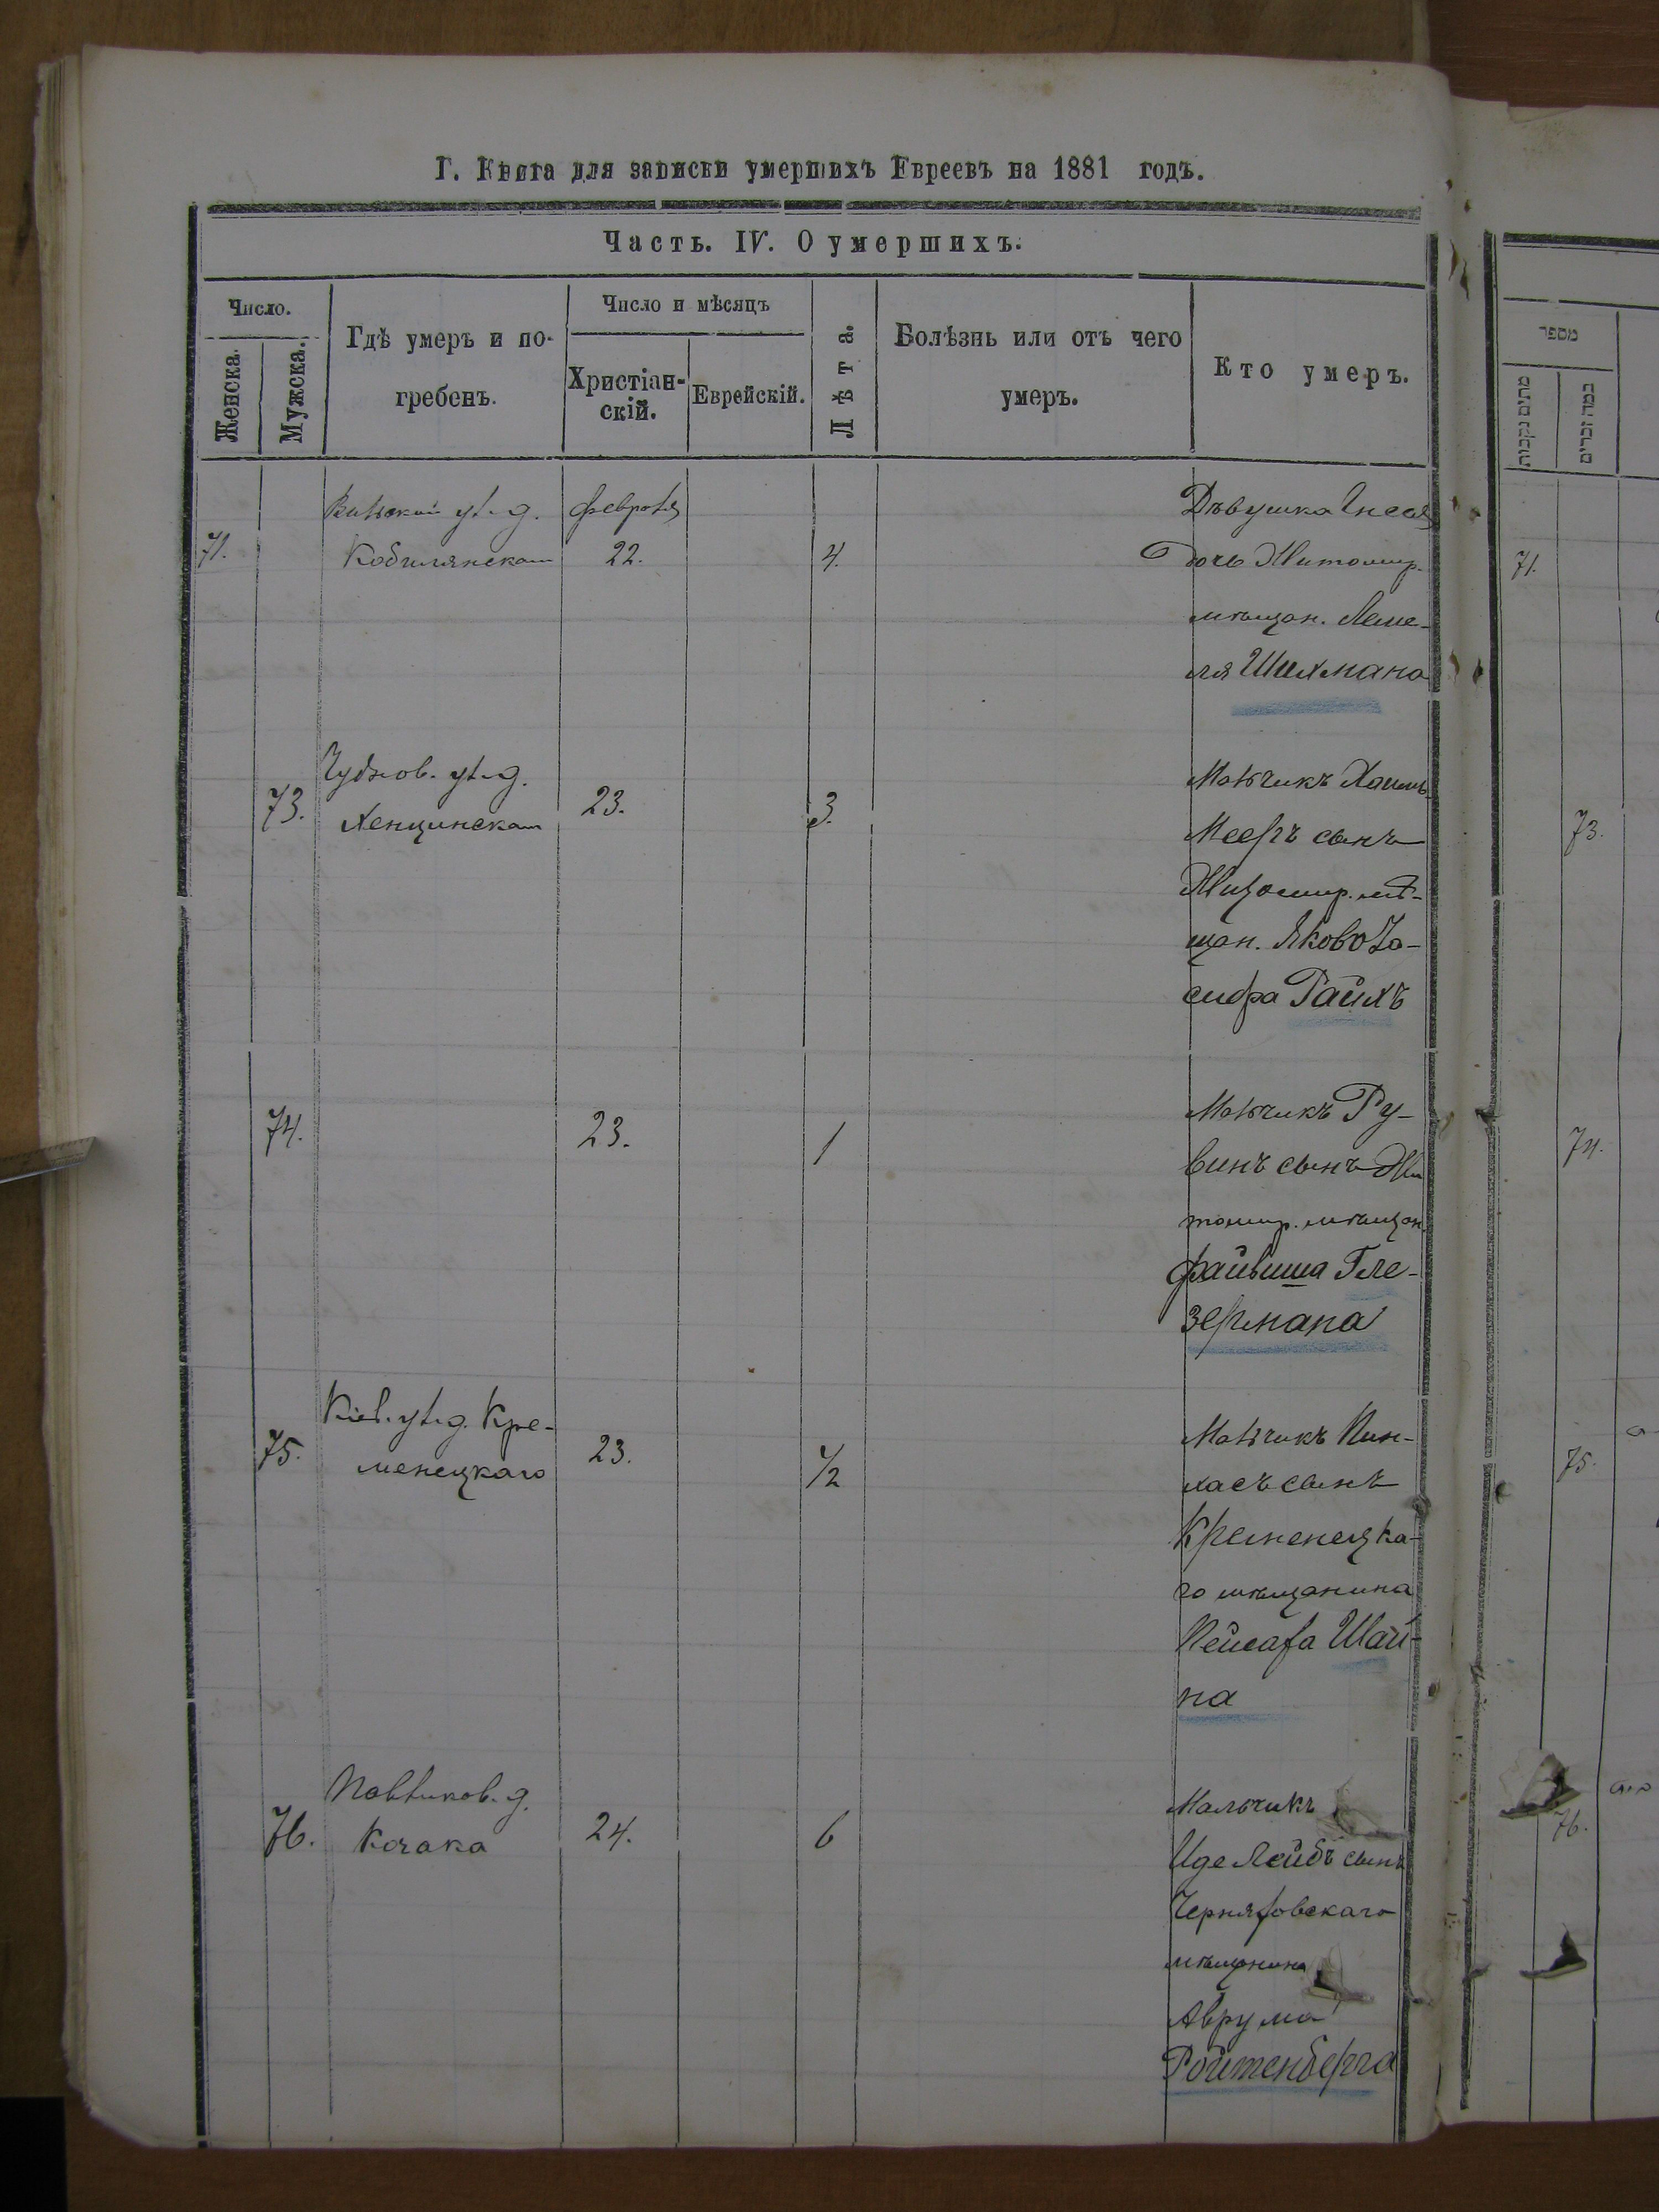 Г. Книга для записки умершихъ Евреевъ на 1881 годъ.
Часть. IV. О умершихъ.
Число.
Женска.
Мужска.
Гдѣ умеръ и по-
гребенъ.
Число и мѣсяцъ
Христіан-
скій.
Еврейскій.
Лѣта.
Болѣзнь или отъ чего
умеръ.
Кто умеръ.
מספר
מתים נקבות
כמה זכרים
71.
ул. д.
февраля
22.
4.
Дѣвушка
дочь Житомир.
мѣщан. Леме-
ля Шихмана
71.
73.
Чуднов. ул. д.
23.
3.
Мальчикъ Хаимъ
Мееръ сынъ
Житомир. мѣ-
щан. Яково Іо-
сифа Райхъ
73.
74.
23.
1
Мальчикъ Ру-
винъ сынъ Жи
томир. мѣщан.
Файвиша Гле-
зермана
74.
75.
Кіев. ул. д. Кре-
менецкаго
23.
1/2
Мальчикъ Пин-
хасъ сынъ
Кременецка-
го мѣщанина
Шай-
на
75.
76.
д.
24.
6
Мальчикъ
Иде Лейбъ сынъ
Черняховскаго
мѣщанина
Аврума
Ройтенберга
76.